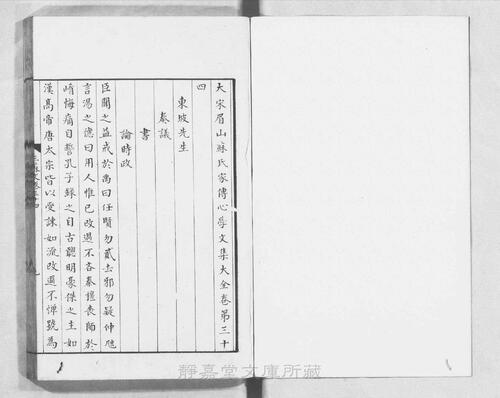 大宋眉山蘇氏家傳心學文集大全卷第三十
四
東坡先生
奏議
書
論時政
臣聞之益戒於禹曰任賢勿貳去邪勿疑仲虺
言湯之德曰用人惟已改過不吝秦穆喪師於
崤悔痛自誓孔子錄之自古聰明豪傑之主如
漢高帝唐太宗皆以受諫如流改過不憚號為
靜嘉堂文庫所藏